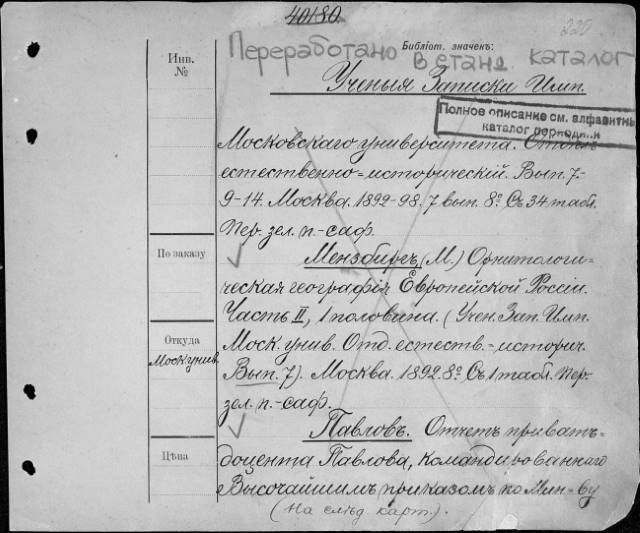 40180.
220
Переработано в станд. каталог
Библіот. значекъ:
Инв.
№
Ученыя Записки Имп.
Полное описание см. алфавитны
каталог периодики
Московскаго университета. Отдѣлъ
естественно-историческій. Вып. 7-
9-14. Москва. 1892-98. 7 вып. 8º. Съ 34 табл.
Пер. зел. п.-саф.
По заказу
Мензбиръ, (М.) Орнитологи-
ческая географія Европейской Россіи.
Часть II, 1 половина. (Учен. Зап. Имп.
Откуда
Моск. унив.
Моск. унив. Отд. естеств.-историч.
Вып. 7). Москва. 1892. 8º. Съ 1 табл. Пер.
зел. п.-саф.
Павловъ. Отчетъ приватъ-
Цѣна
доцента Павлова, командированнаго
Высочайшимъ приказомъ по Мин-ву
(На слѣд. карт.).